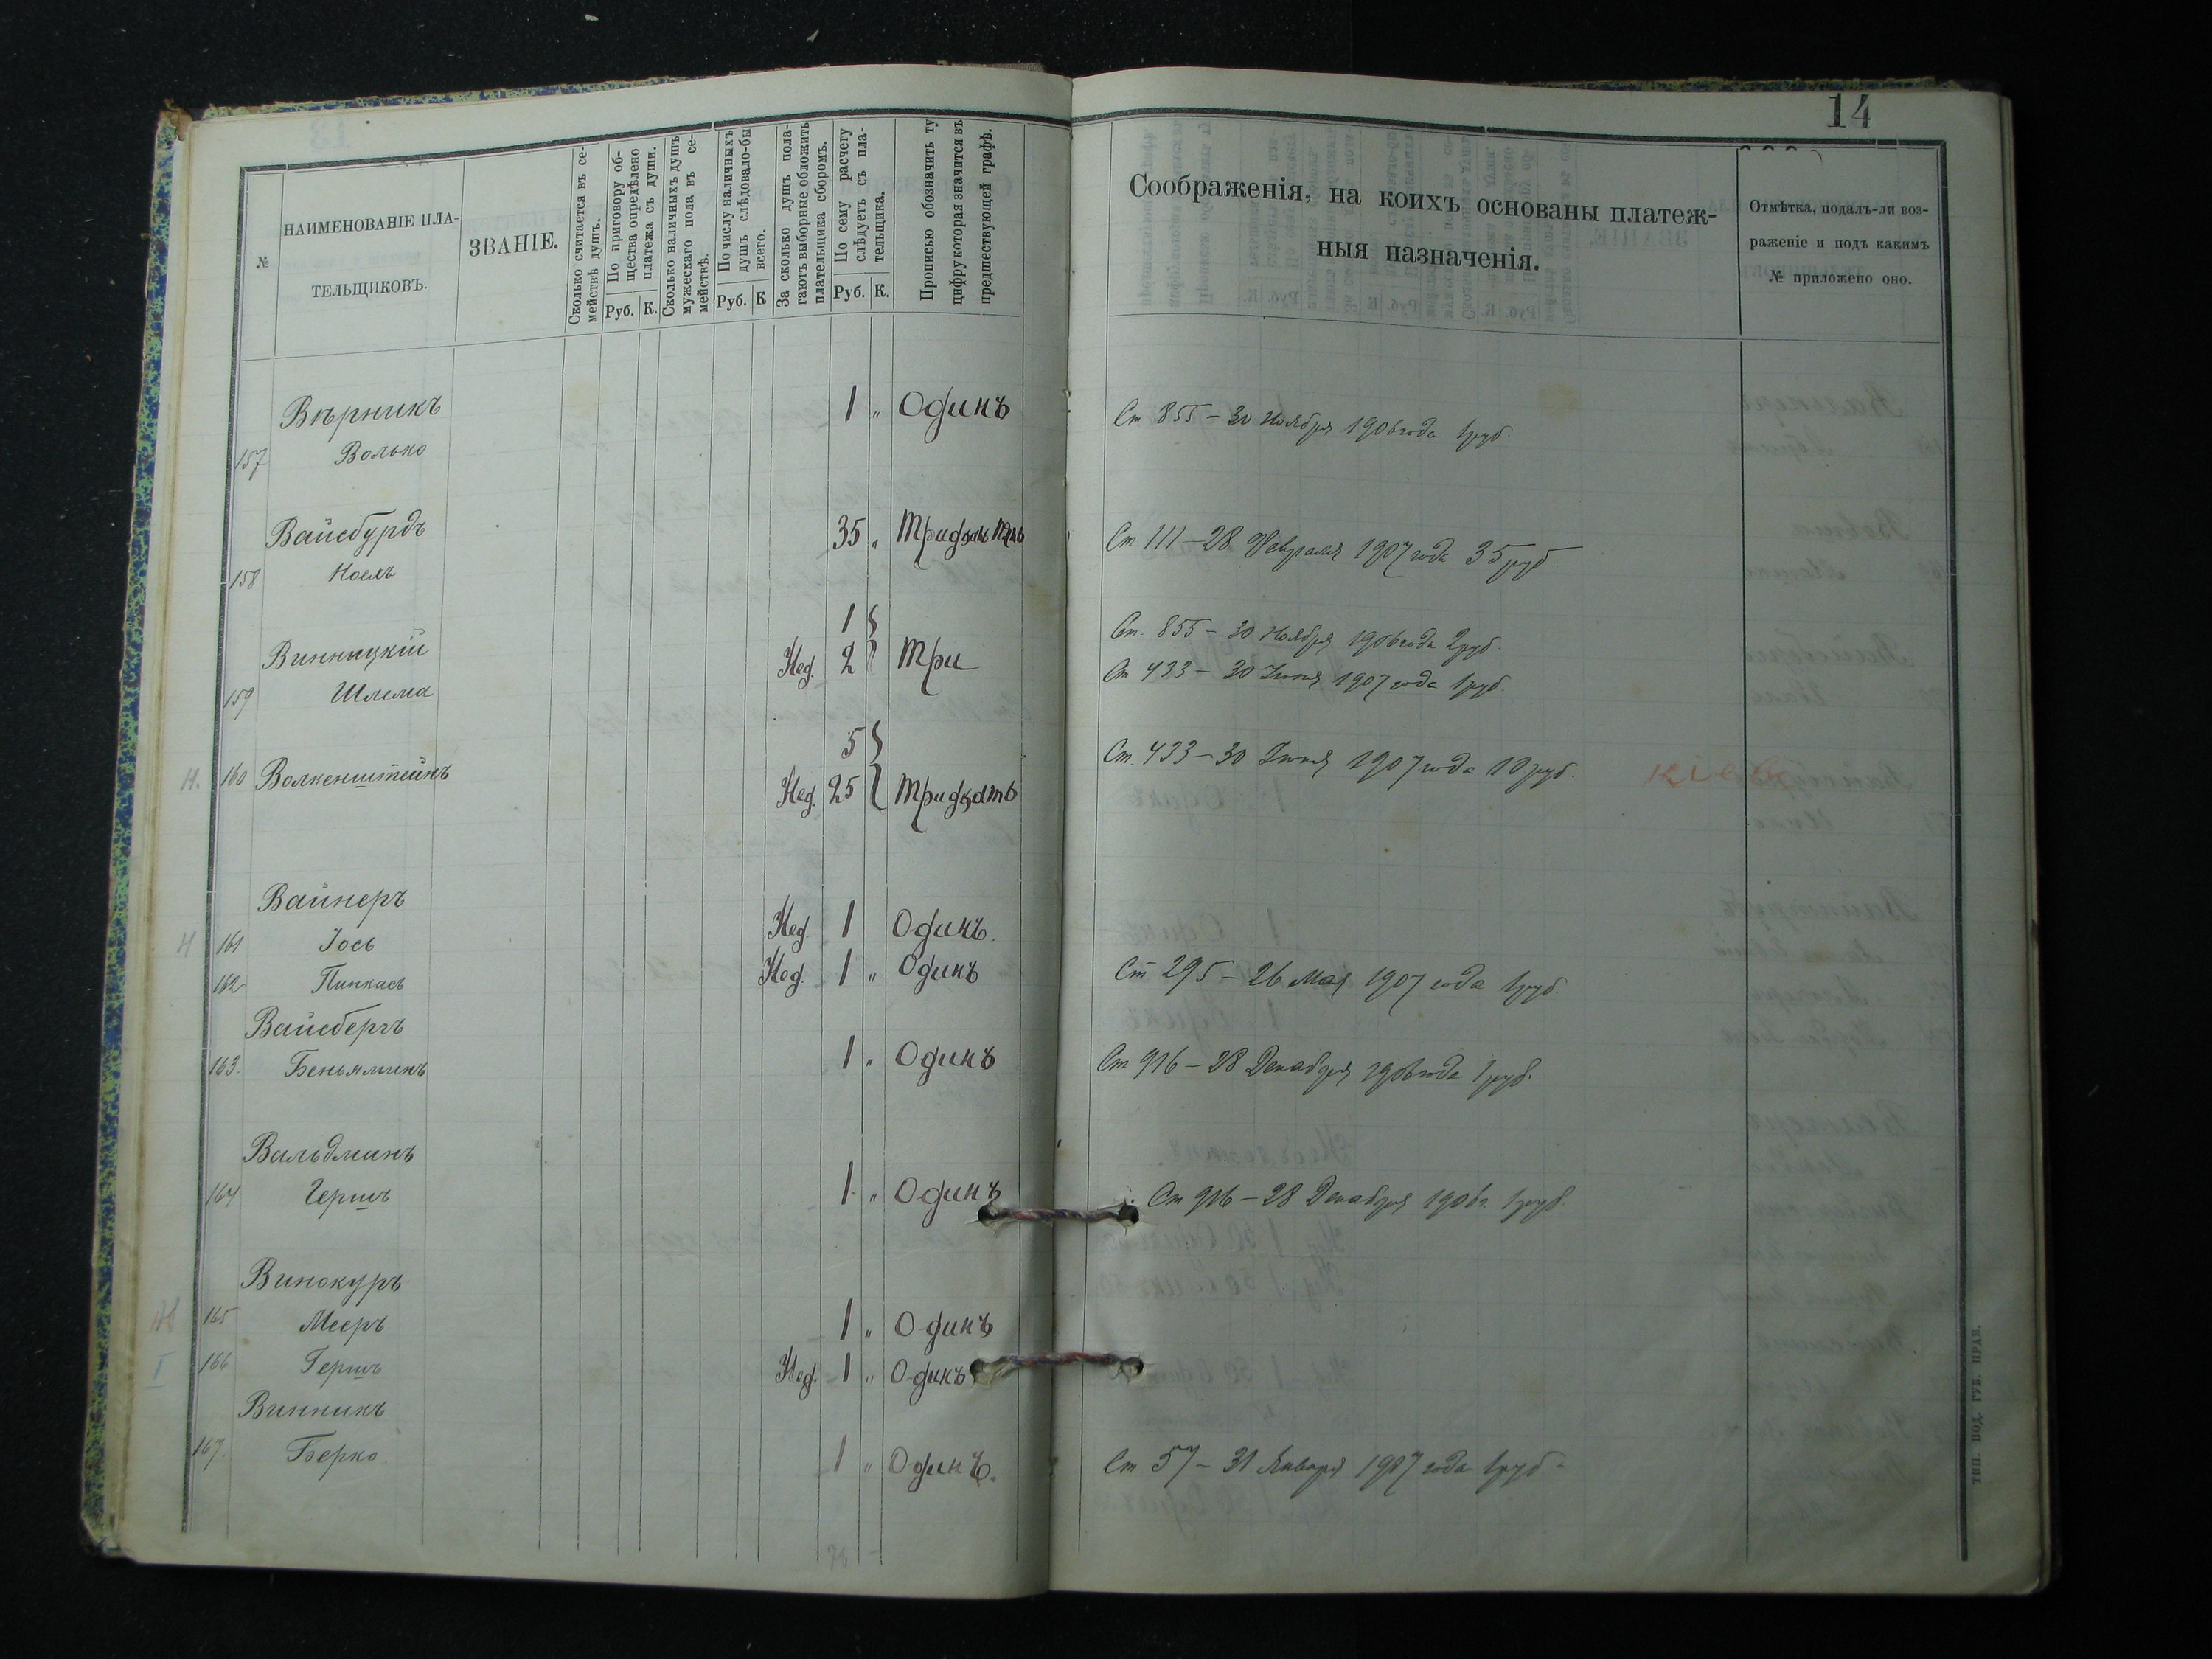 14
№
НАИМЕНОВАНІЕ ПЛА-
ТЕЛЬЩИКОВЪ.
ЗВАНІЕ.
Сколько считается въ се-
мействѣ душъ.
По приговору об-
щества опредѣлено
платежа съ души.
Руб. К.
Сколько наличныхъ душъ
мужескаго пола въ се-
мействѣ.
По числу наличныхъ
душъ слѣдовало-бы
всего.
Руб. К
За сколько душъ пола-
гаютъ выборные обложить
плательщика сборомъ.
По сему расчету
слѣдуетъ съ пла-
тельщика.
Руб. К.
Прописью обозначить ту
цифру которая значится въ
предшествующей графѣ.
Соображенія, на коихъ основаны платеж-
ныя назначенія.
Отмѣтка, подалъ-ли воз-
раженіе и подъ какимъ
№ приложено оно.
Вѣрникъ 1 " Одинъ Ст 855 – 30 Ноября 1906 года 1 руб.
157 Волько
Вайсбурдъ 35 " Тридцать Пять Ст 111 – 28 Февраля 1907 года 35 руб
158 Ноель
1 Ст. 855 – 30 Ноября 1906 года 2 руб.
Винницкій Нед. 2 Три Ст 433 – 30 Іюня 1907 года 1 руб.
159 Шлема
5
Н. 160 Волкенштейнъ Нед. 25 Тридцать Ст. 433 – 30 Іюня 1907 года 10 руб. Кіевъ
Вайнеръ
Н 161 Іось Нед 1 Одинъ.
162 Пинкасъ Нед. 1 " Одинъ Ст 295 – 26 Мая 1907 года 1 руб.
Вайсбергъ
163. Беньяминъ 1 " Одинъ Ст 916 – 28 Декабря 1906 года 1 руб.
Вальдманъ
164 Гершъ 1 " Одинъ Ст 916 – 28 Декабря 1906 г. 1 руб.
Винокуръ
165 Мееръ 1 " Одинъ
I 166 Гершъ Нед. 1 " Одинъ
Винникъ
167. Берко 1 " Одинъ. Ст 57 – 31 Января 1907 года 1 руб
76
ТИП. ПОД. ГУБ. ПРАВ.